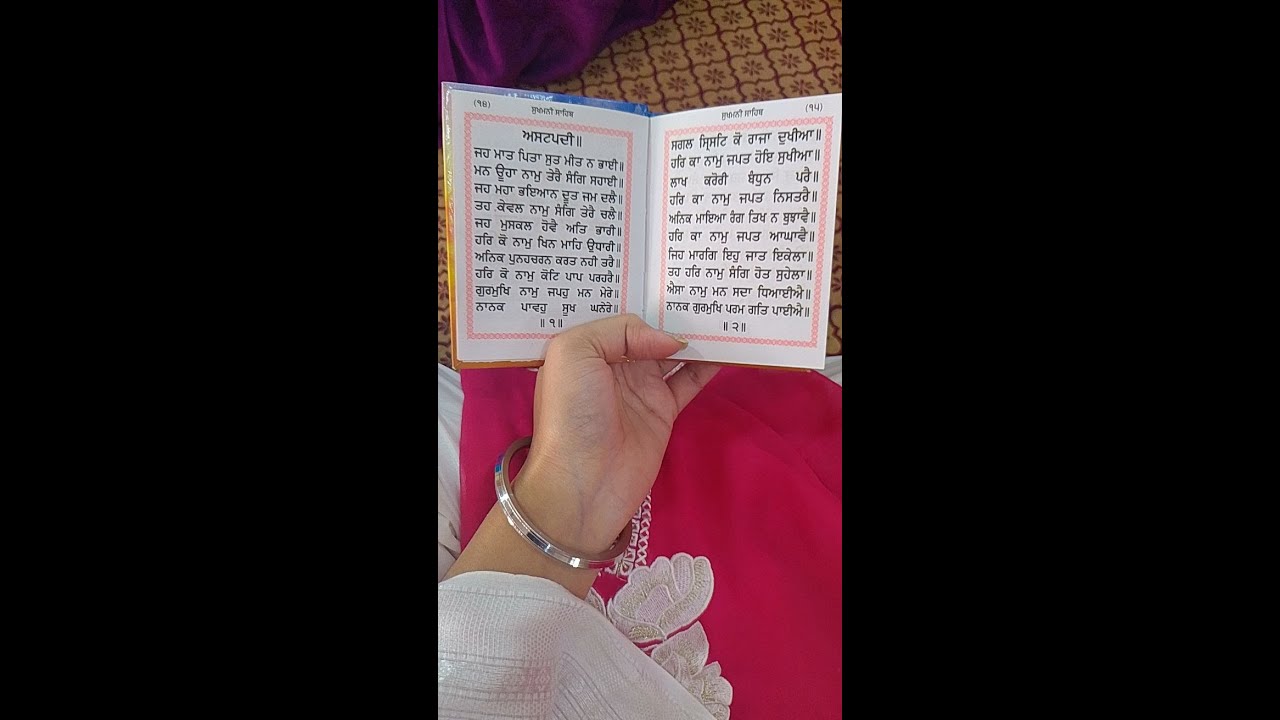 (੧੪)
ਸੁਖਮਨੀ ਸਾਹਿਬ
ਅਸਟਪਦੀ॥
ਜਹ ਮਾਤ ਪਿਤਾ ਸੁਤ ਮੀਤ ਨ ਭਾਈ॥
ਮਨ ਊਹਾ ਨਾਮੁ ਤੇਰੈ ਸੰਗਿ ਸਹਾਈ॥
ਜਹ ਮਹਾ ਭਇਆਨ ਦੂਤ ਜਮ ਦਲੈ॥
ਤਹ ਕੇਵਲ ਨਾਮੁ ਸੰਗਿ ਤੇਰੈ ਚਲੈ॥
ਜਹ ਮੁਸਕਲ ਹੋਵੈ ਅਤਿ ਭਾਰੀ॥
ਹਰਿ ਕੋ ਨਾਮੁ ਖਿਨ ਮਾਹਿ ਉਧਾਰੀ॥
ਅਨਿਕ ਪੁਨਹਚਰਨ ਕਰਤ ਨਹੀ ਤਰੈ॥
ਹਰਿ ਕੋ ਨਾਮੁ ਕੋਟਿ ਪਾਪ ਪਰਹਰੈ॥
ਗੁਰਮੁਖਿ ਨਾਮੁ ਜਪਹੁ ਮਨ ਮੇਰੇ॥
ਨਾਨਕ ਪਾਵਹੁ ਸੂਖ ਘਨੇਰੇ॥
॥੧॥
ਸੁਖਮਨੀ ਸਾਹਿਬ
(੧੫)
ਸਗਲ ਸ੍ਰਿਸਟਿ ਕੋ ਰਾਜਾ ਦੁਖੀਆ॥
ਹਰਿ ਕਾ ਨਾਮੁ ਜਪਤ ਹੋਇ ਸੁਖੀਆ॥
ਲਾਖ ਕਰੋਰੀ ਬੰਧੁਨ ਪਰੈ॥
ਹਰਿ ਕਾ ਨਾਮੁ ਜਪਤ ਨਿਸਤਰੈ॥
ਅਨਿਕ ਮਾਇਆ ਰੰਗ ਤਿਖ ਨ ਬੁਝਾਵੈ॥
ਹਰਿ ਕਾ ਨਾਮੁ ਜਪਤ ਆਘਾਵੈ॥
ਜਿਹ ਮਾਰਗਿ ਇਹੁ ਜਾਤ ਇਕੇਲਾ॥
ਤਹ ਹਰਿ ਨਾਮੁ ਸੰਗਿ ਹੋਤ ਸੁਹੇਲਾ॥
ਐਸਾ ਨਾਮੁ ਮਨ ਸਦਾ ਧਿਆਈਐ॥
ਨਾਨਕ ਗੁਰਮੁਖਿ ਪਰਮ ਗਤਿ ਪਾਈਐ॥
॥੨॥